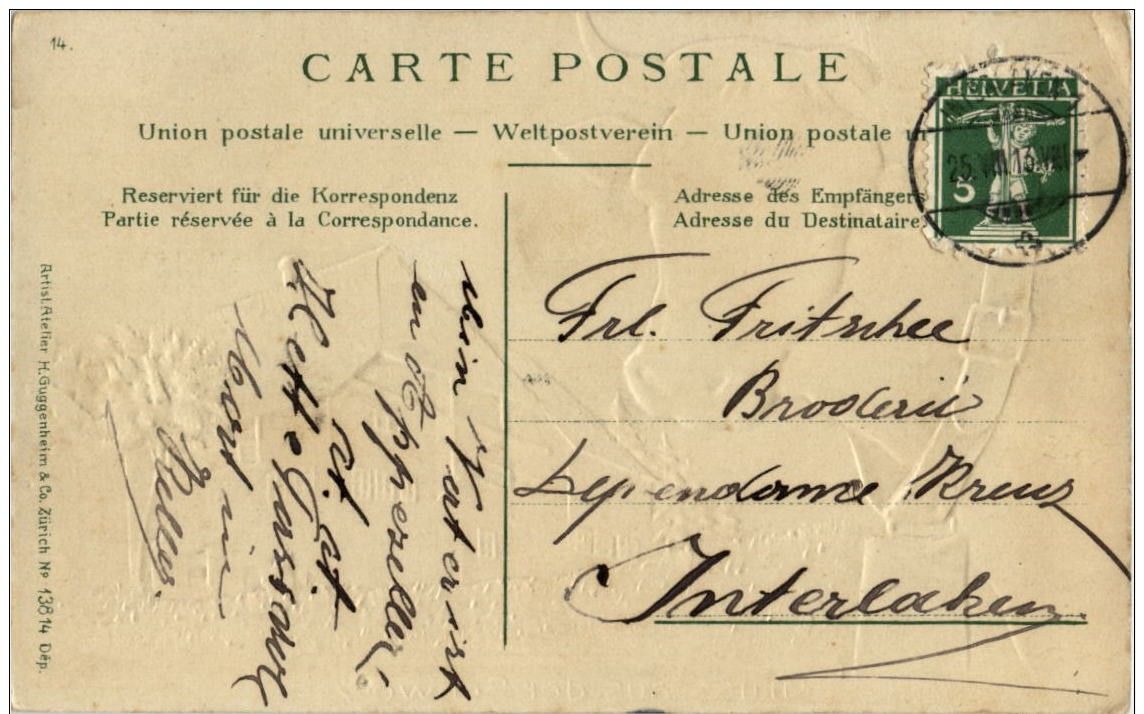 14.
CARTE POSTALE
Union postale universelle — Weltpostverein — Union postale
HELVETIA
25.VIII.13.VIII
5
Reserviert für die Korrespondenz
Partie réservée à la Correspondance.
Adresse des Empfängers
Adresse du Destinataire
Artist. Atelier H. Guggenheim & Co. Zürich Nº 13814 Dép.
Mein Vater ist
en Appezeller,
Frl. Fritschee
Broderie
Dependance Kreuz
Interlaken